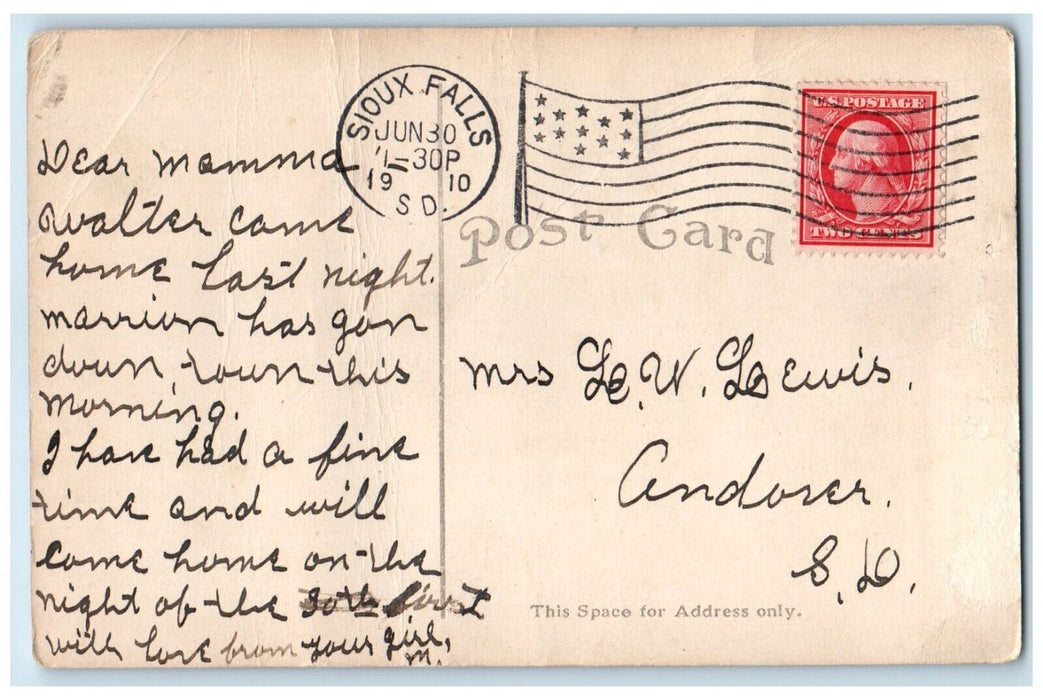 SIOUX FALLS
JUN 30
1-30P
19 10
S D.
U.S. POSTAGE
TWO CENTS
Post Card
Dear mamma
walter came
home last night.
marrion has gon
down, town this
morning.
I have had a fine
time and will
come home on the
night of the 30th first
with love from your girl,
M.
Mrs L. W. Lewis.
Andover.
S. D.
This Space for Address only.